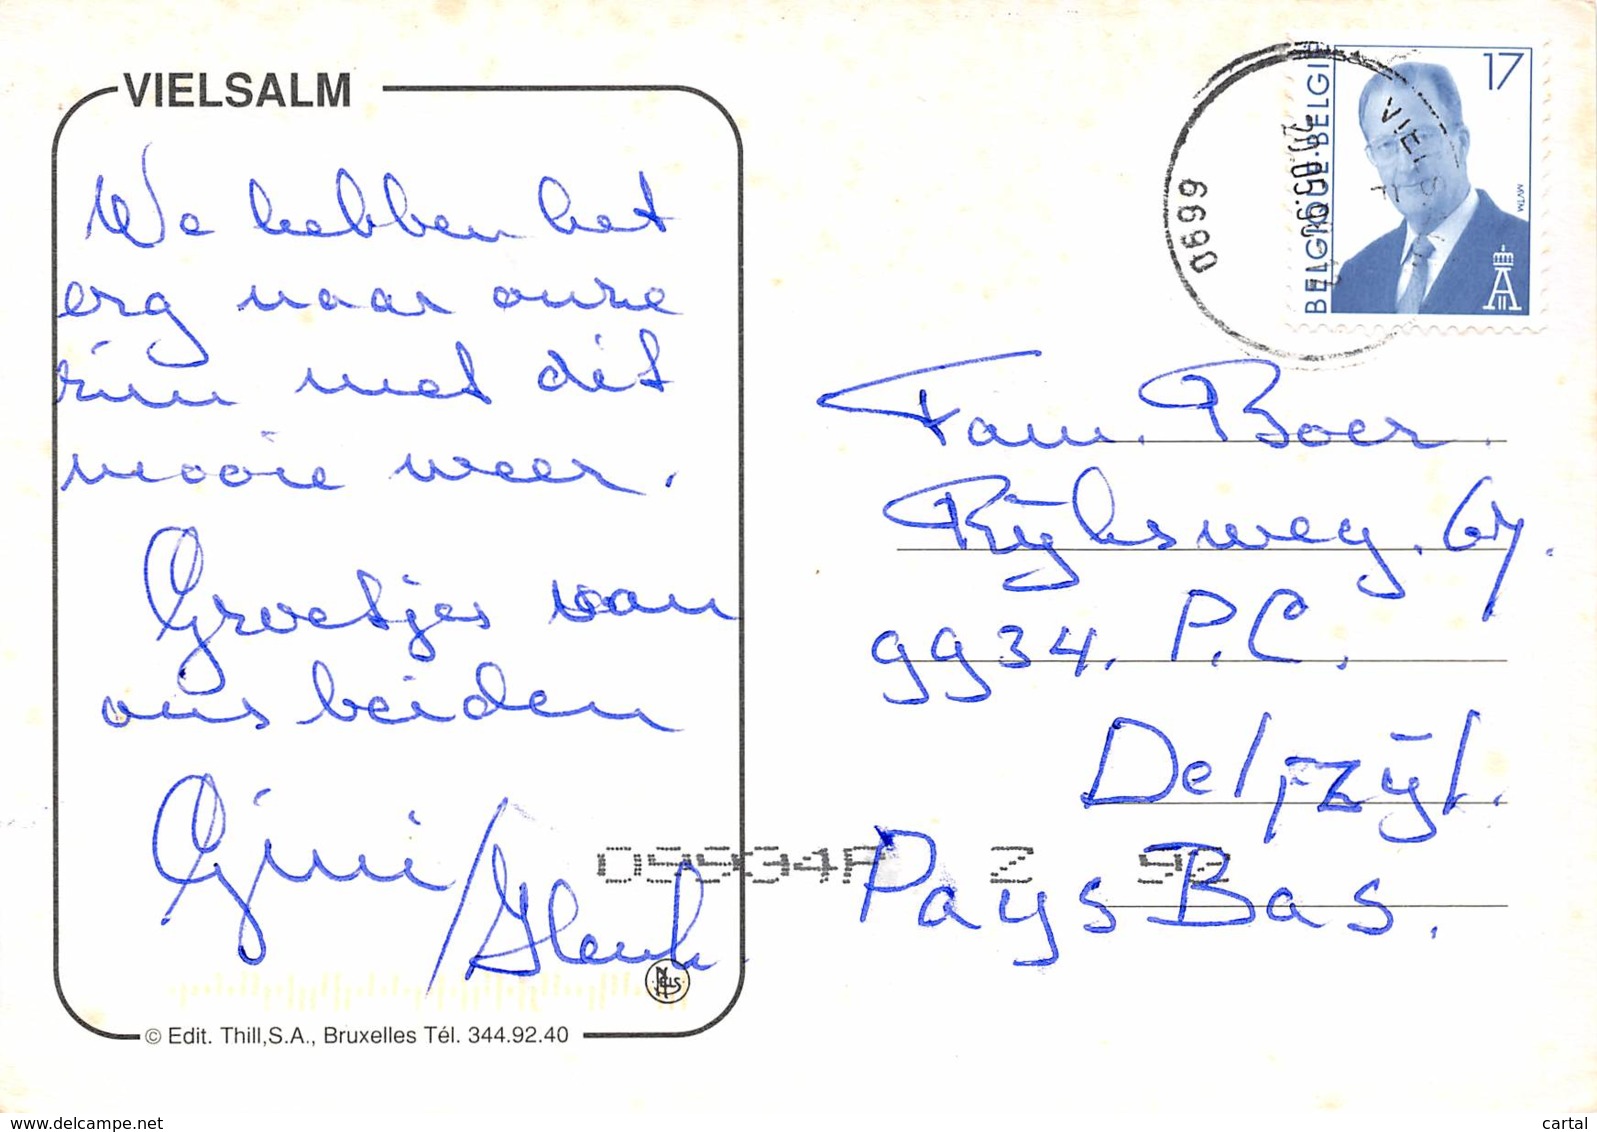 VIELSALM
We hebben het
erg naar onze
zin met dit
mooie weer.
Groetjes van
ons beiden
Gjini/Henk.
NELS
© Edit. Thill,S.A., Bruxelles Tél. 344.92.40
17
BELGIQUE·BELGIE
MVTM
0699
Fam. Boer.
Rijksweg. 67.
9934. P.C.
Delfzijl.
Pays Bas.
D9934P Z 92
www.delcampe.net
cartal